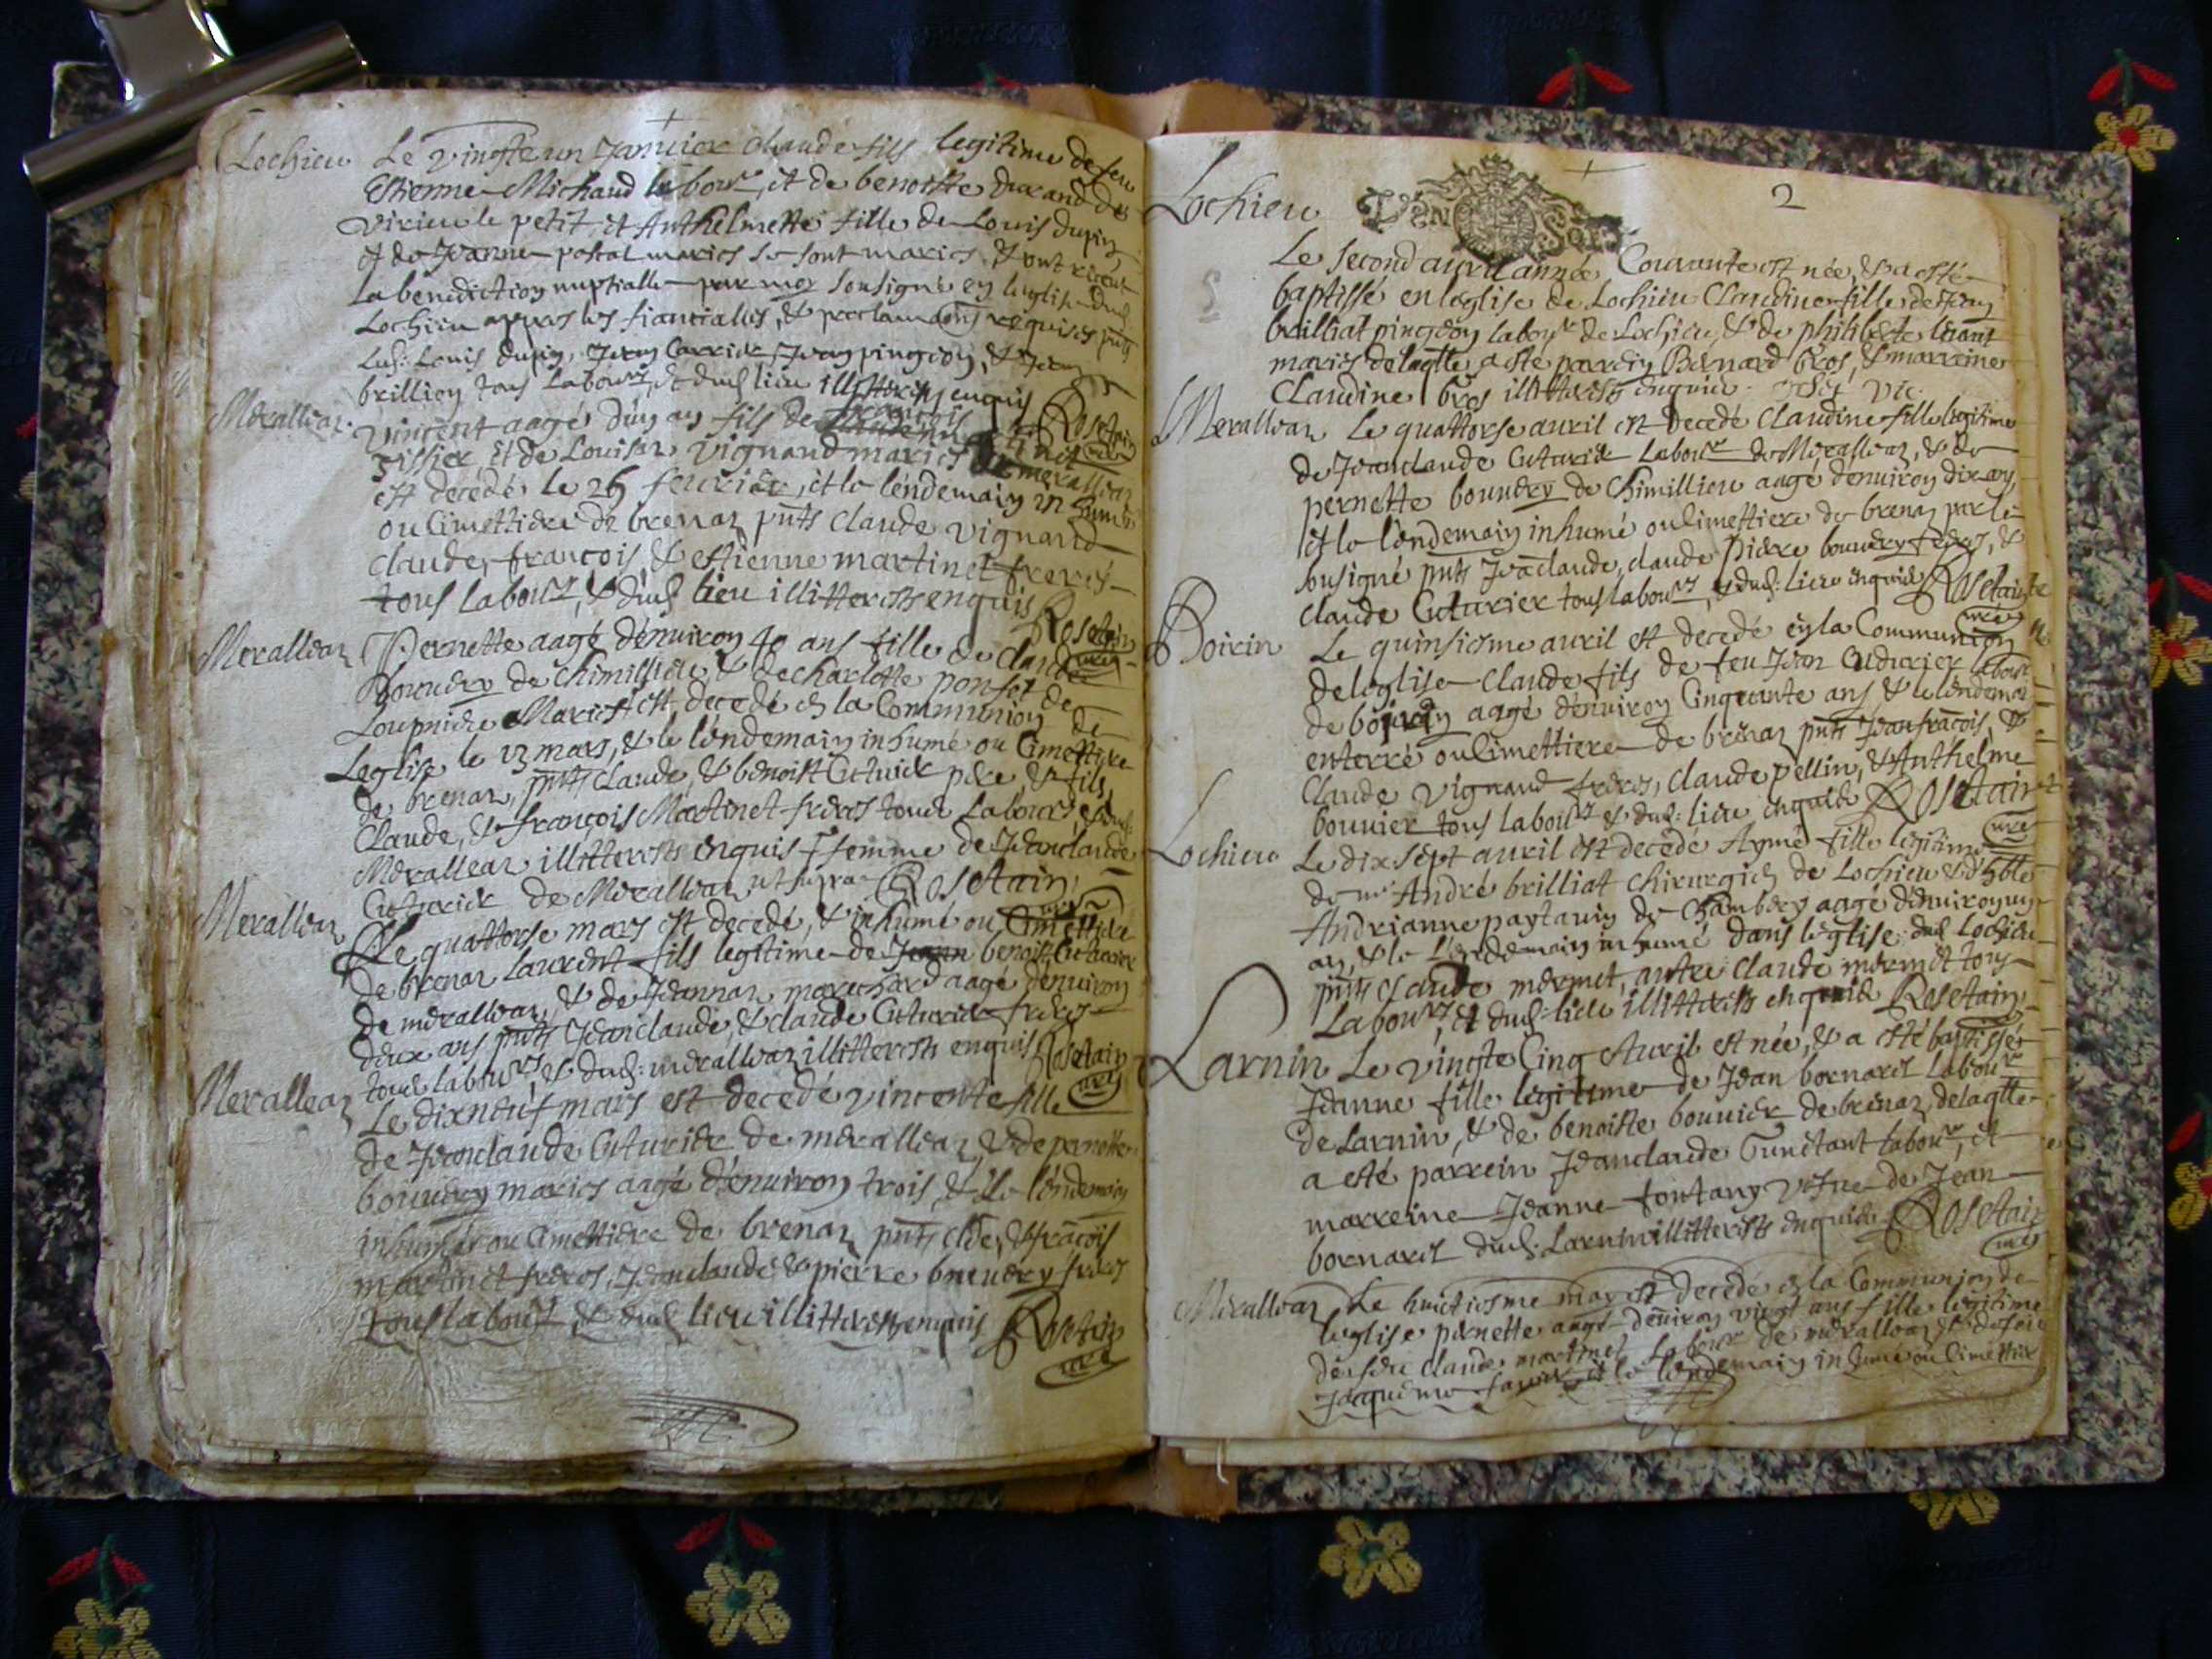 Lochieu Le vingte un Januier claude fils legitime de feu
Estienne Michaud labour, et de benoiste durand de
virieu le petit, et Anthelmette fille de Louis dupin
et de Jeanne postal mariés se sont mariés & ont receu
La benediction nuptialle par moy sousigné en leglise dud
Lochieu appres les fiancialles, & proclamaons requises pnts
Led: Louis dupin, Jean Carrier, Jean pingeon, &
brillion tous Labours, & dud lieu illitterés enquis
Rosetain
Meralleaz vincent aagé d'un an fils de françois
tissier, et de Louisaz vignand mariés de meralleaz
est decedé le 26 feurier, et le lendemain inhumé
ou Cimettiere de brenaz pnts claude vignand
claude, françois, & estienne martinet freres
tous labours, & dud lieu illitterés enquis
Rosetain
Meralleaz Pernette aagé d'enuiron 40 ans fille de claude
bouuery de chimillieu, & de charlotte ponset de
Loupniere Mariés est decedé en la Communion de
Leglise le 13 mars, & le lendemain inhumé ou Cimettiere
de brenaz, pnts claude, & benoist Cuturier pere, & fils,
Claude, & françois Martinet freres tous Labours, & dud:
Meralleaz illitterés enquis femme de Jeanclaude
Cuturier de Meralleaz ut supra Rosetain
Meralleaz Le quattorse mars est decedé, & inhumé ou Cimettiere
de brenaz laurent fils legitime de benoist Cuturier
de meralleaz, & de Jeannaz marechard aagé d'enuiron
deux ans pnts Jeanclaude, & claude Cuturier freres
tous labours, & dud: meralleaz illitterés enquis Rosetain
Meralleaz Le dixneuf mars est decedé vincente fille
de Jeanclaude Cuturier de meralleaz, & de pernette
bouuery mariés aagé d'enuiron trois, & le lendemain
inhumée ou Cimettiere de brenaz pnts clde, & fracois
martinet freres, Jeanclaude & pierre bouuery freres
tous labours, & dud lieu illitterés enquis Rosetain
2
Lochieu
Le second auril année Courante est née, & a esté
baptissé en leglise de Lochieu Claudine fille de Jean
brilliat pingeon labour de Lochieu, & de philiberte
mariés delaqlle a esté parrein Bernard bros, & marreine
Claudine bros illitterés enquis
Meralleaz Le quattorse auril est decedé claudine fille legitime
de Jeanclaude Cuturier Labour de Meralleaz, & de
pernette bouuery de Chimillieu aagé denuiron dix ans,
et le lendemain inhumé ou Cimettiere de brenaz par le
sousigné pnts Jeaclaude, claude pierre bouuery freres, &
claude Cuturier tous labours, & dud: lieu enquis Rosetain
Boirin Le quinsiesme auril est decedé en la Communion
de leglise claude fils de feu Jean Cuturier labour
de boirin aagé d'enuiron Cinquante ans & le lendemain
enterré ou Cimettiere de brenaz pnts Jean fracois, &
Claude vignand freres, claude pellin, & Anthelme
bouuier tous labours & dud: lieu enquis Rosetain
Lochieu Le dix sept auril est decedé Aymé fille legitime
de mr André brilliat chirurgien de Lochieu &
Andrianne paytauin de Chambery aagé d'enuiron un
an, & le lendemain inhumé dans leglise dud Lochieu
pnts claude mermet, autre claude mermet tous
Labours, & dud: lieu illitterés enquis Rosetain
Larnin Le vingte Cinq Auril est née, & a esté baptissée
Jeanne fille legitime de Jean bornard labour
de Larnin, & de benoiste bouuier de brenaz, delaqlle
a esté parrein Jeanclaude labour, et
marreine Jeanne fontany vefue de Jean
bornard dud. Larnin illitterés enquis Rosetain
Meralleaz Le huictiesme may est decedé en la Communion de
leglise pernette aagé denuiron vingt ans fille legitime
de feu claude martinet labour de meralleaz, & de feu
Jacqueme et le lendemain inhumé ou Cimettiere